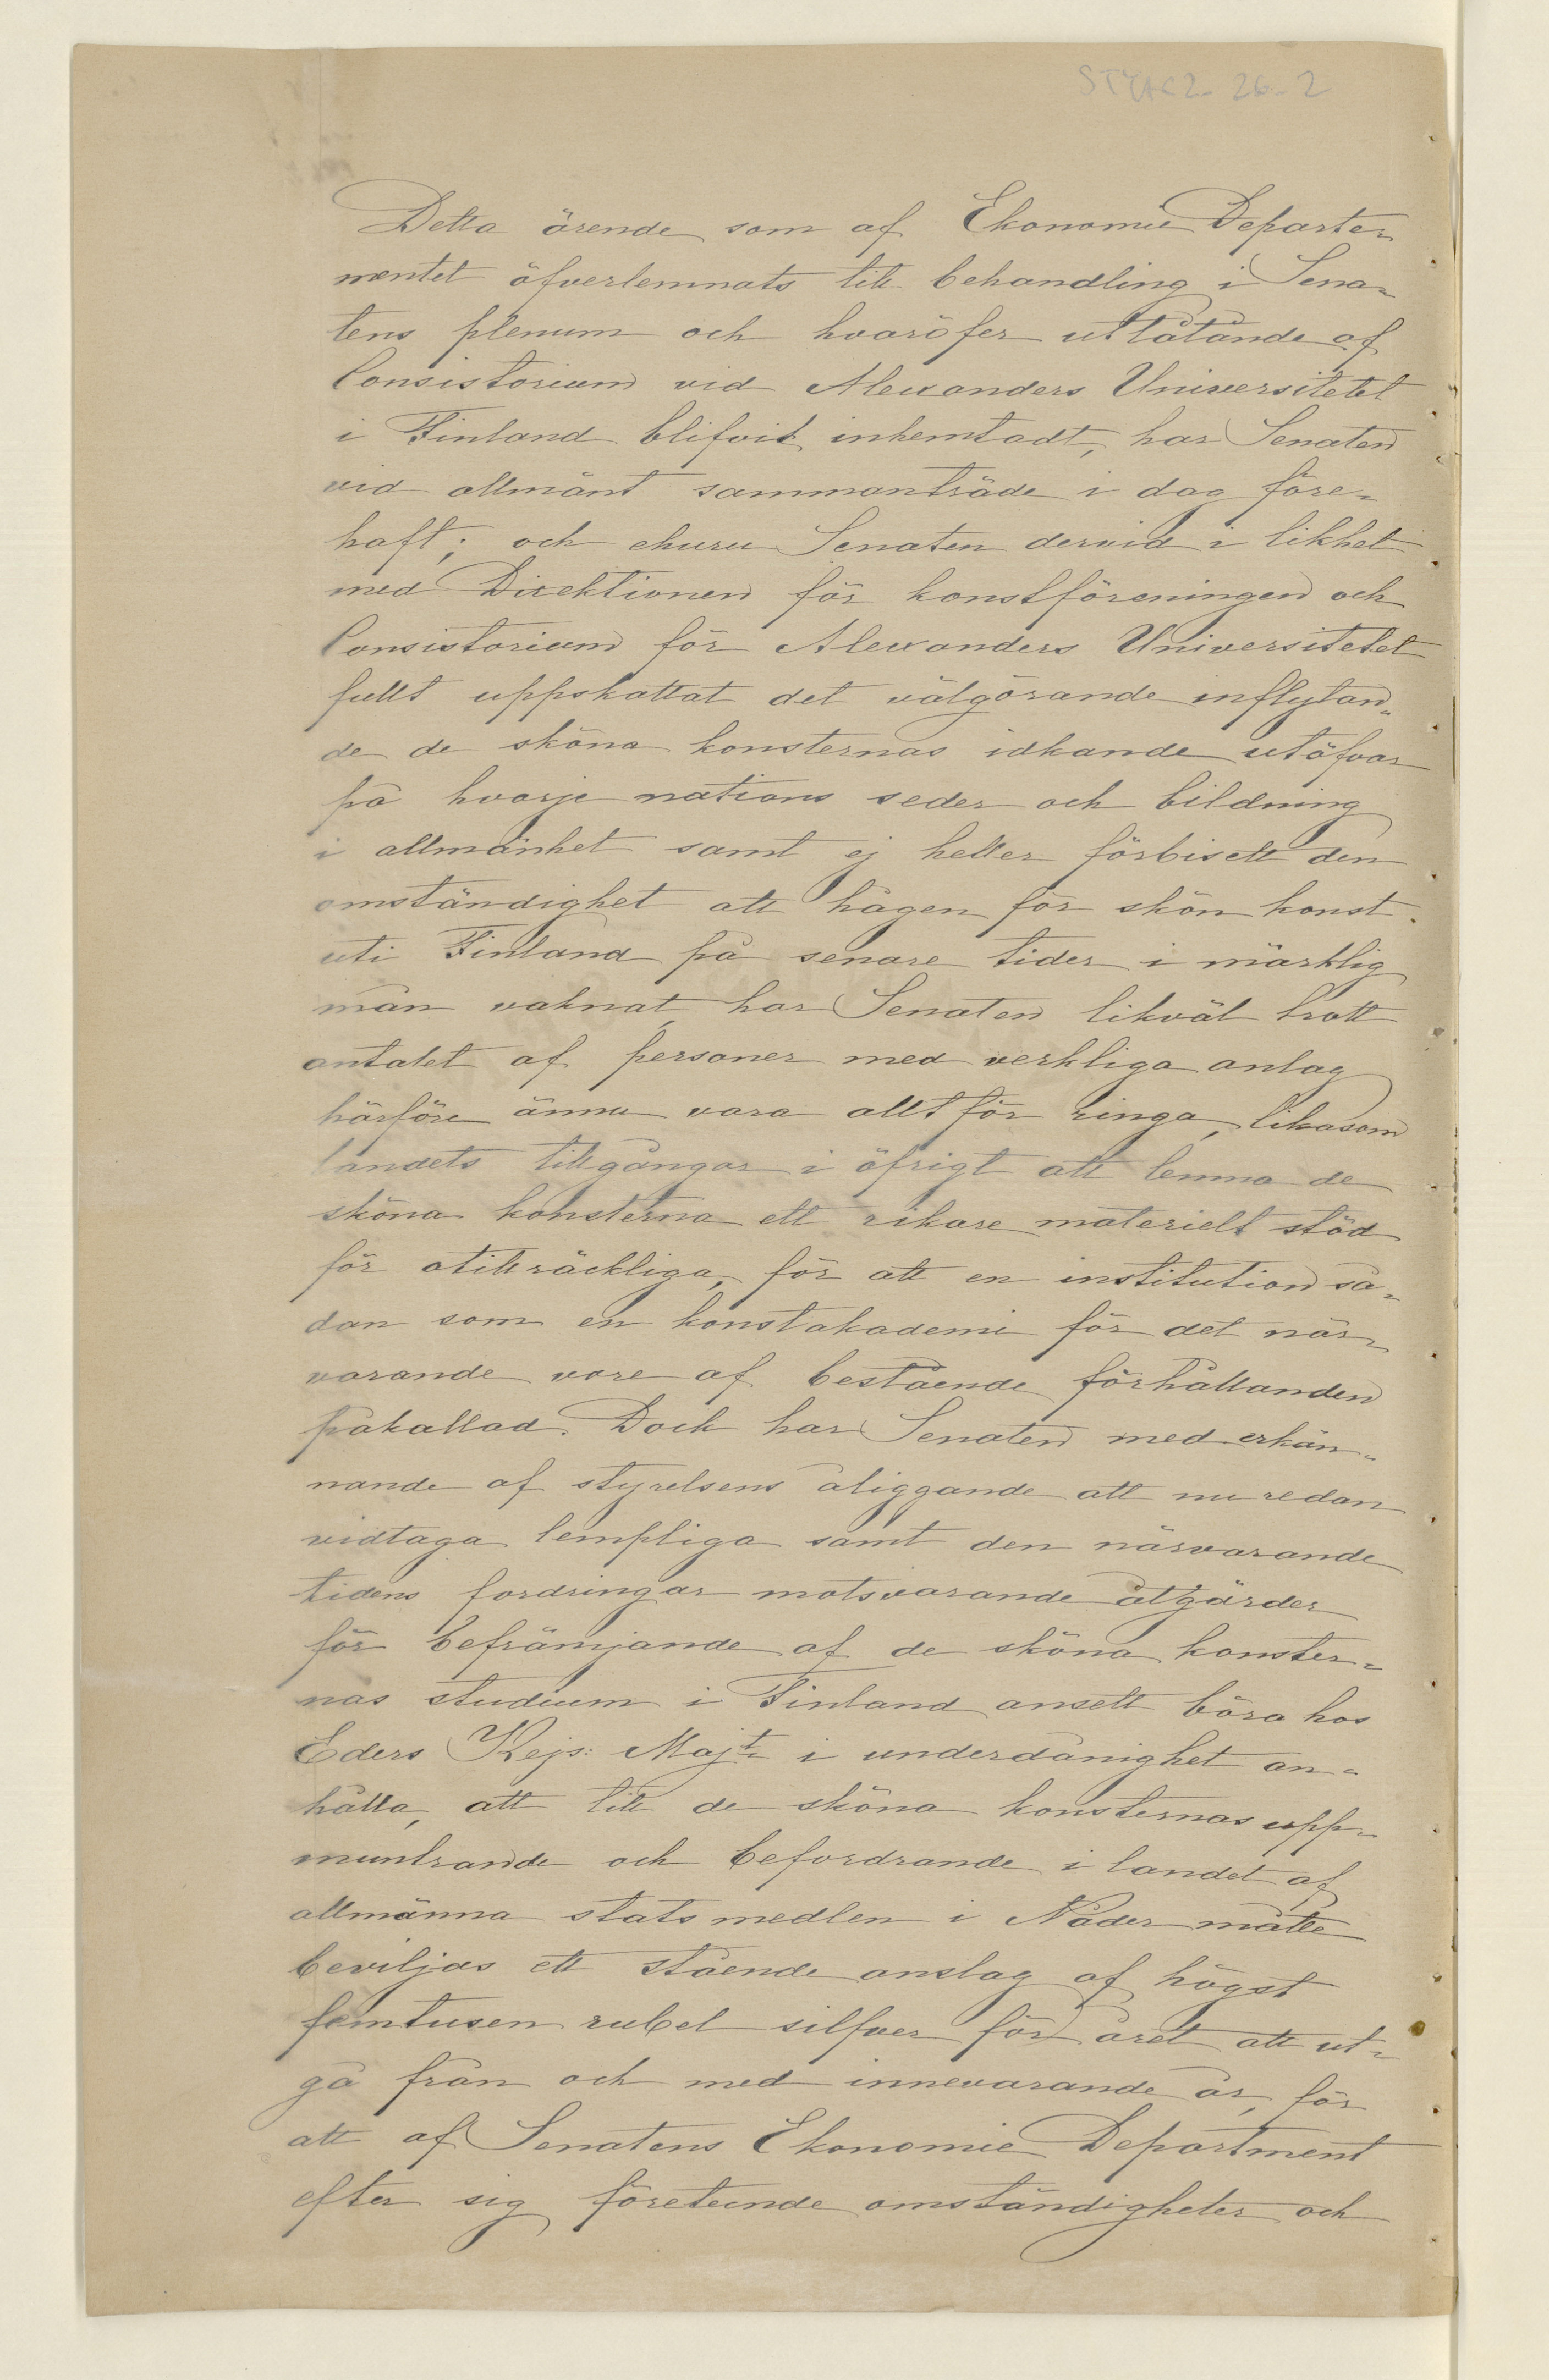 Detta ärende som af Ekonomie Departe-
mentet öfverlemnats till behandling i Sena-
tens plenum och hvaröfver utlåtande af
Consistorium vid Alexanders Universitetet
i Finland blifvit inhemtadt, har Senaten
vid allmänt sammanträde i dag före-
haft; och ehuru Senaten dervid i likhet
med Direktionen för konstföreningen och
Consistorium för Alexanders Universitetet
fullt uppskattat det välgörande inflytan-
de de sköna konsternas idkande utöfvar
på hvarje nations seder och bildning
i allmänhet samt ej heller förbisett den
omständighet att hågen för skön konst
uti Finland på senare tider i märklig
mån vaknat, har Senaten likväl trott
antalet af personer med verkliga anlag
härföre ännu vara allt för ringa, likasom
landets tillgångar i öfrigt att lemna de
sköna konsterna ett rikare materielt stöd
för otillräckliga, för att en institution så-
dan som en konstakademi för det när-
varande vore af bestående förhållanden
påkallad. Dock har Senaten med erkän-
nande af styrelsens åliggande att nu redan
vidtaga lempliga samt den närvarande
tidens fordringar motsvarande åtgärder
för befrämjande af de sköna konster-
nas studium i Finland ansett böra hos
Eders Kejs: Majt: i underdånighet an-
hålla, att till de sköna konsternas upp-
muntrande och befordrande i landet af
allmänna statsmedlen i Nåder måtte
beviljas ett stående anslag af högst
femtusen rubel silfver för året att ut-
gå från och med innevarande år, för
att af Senatens Ekonomie Department
efter sig företeende omständigheter och